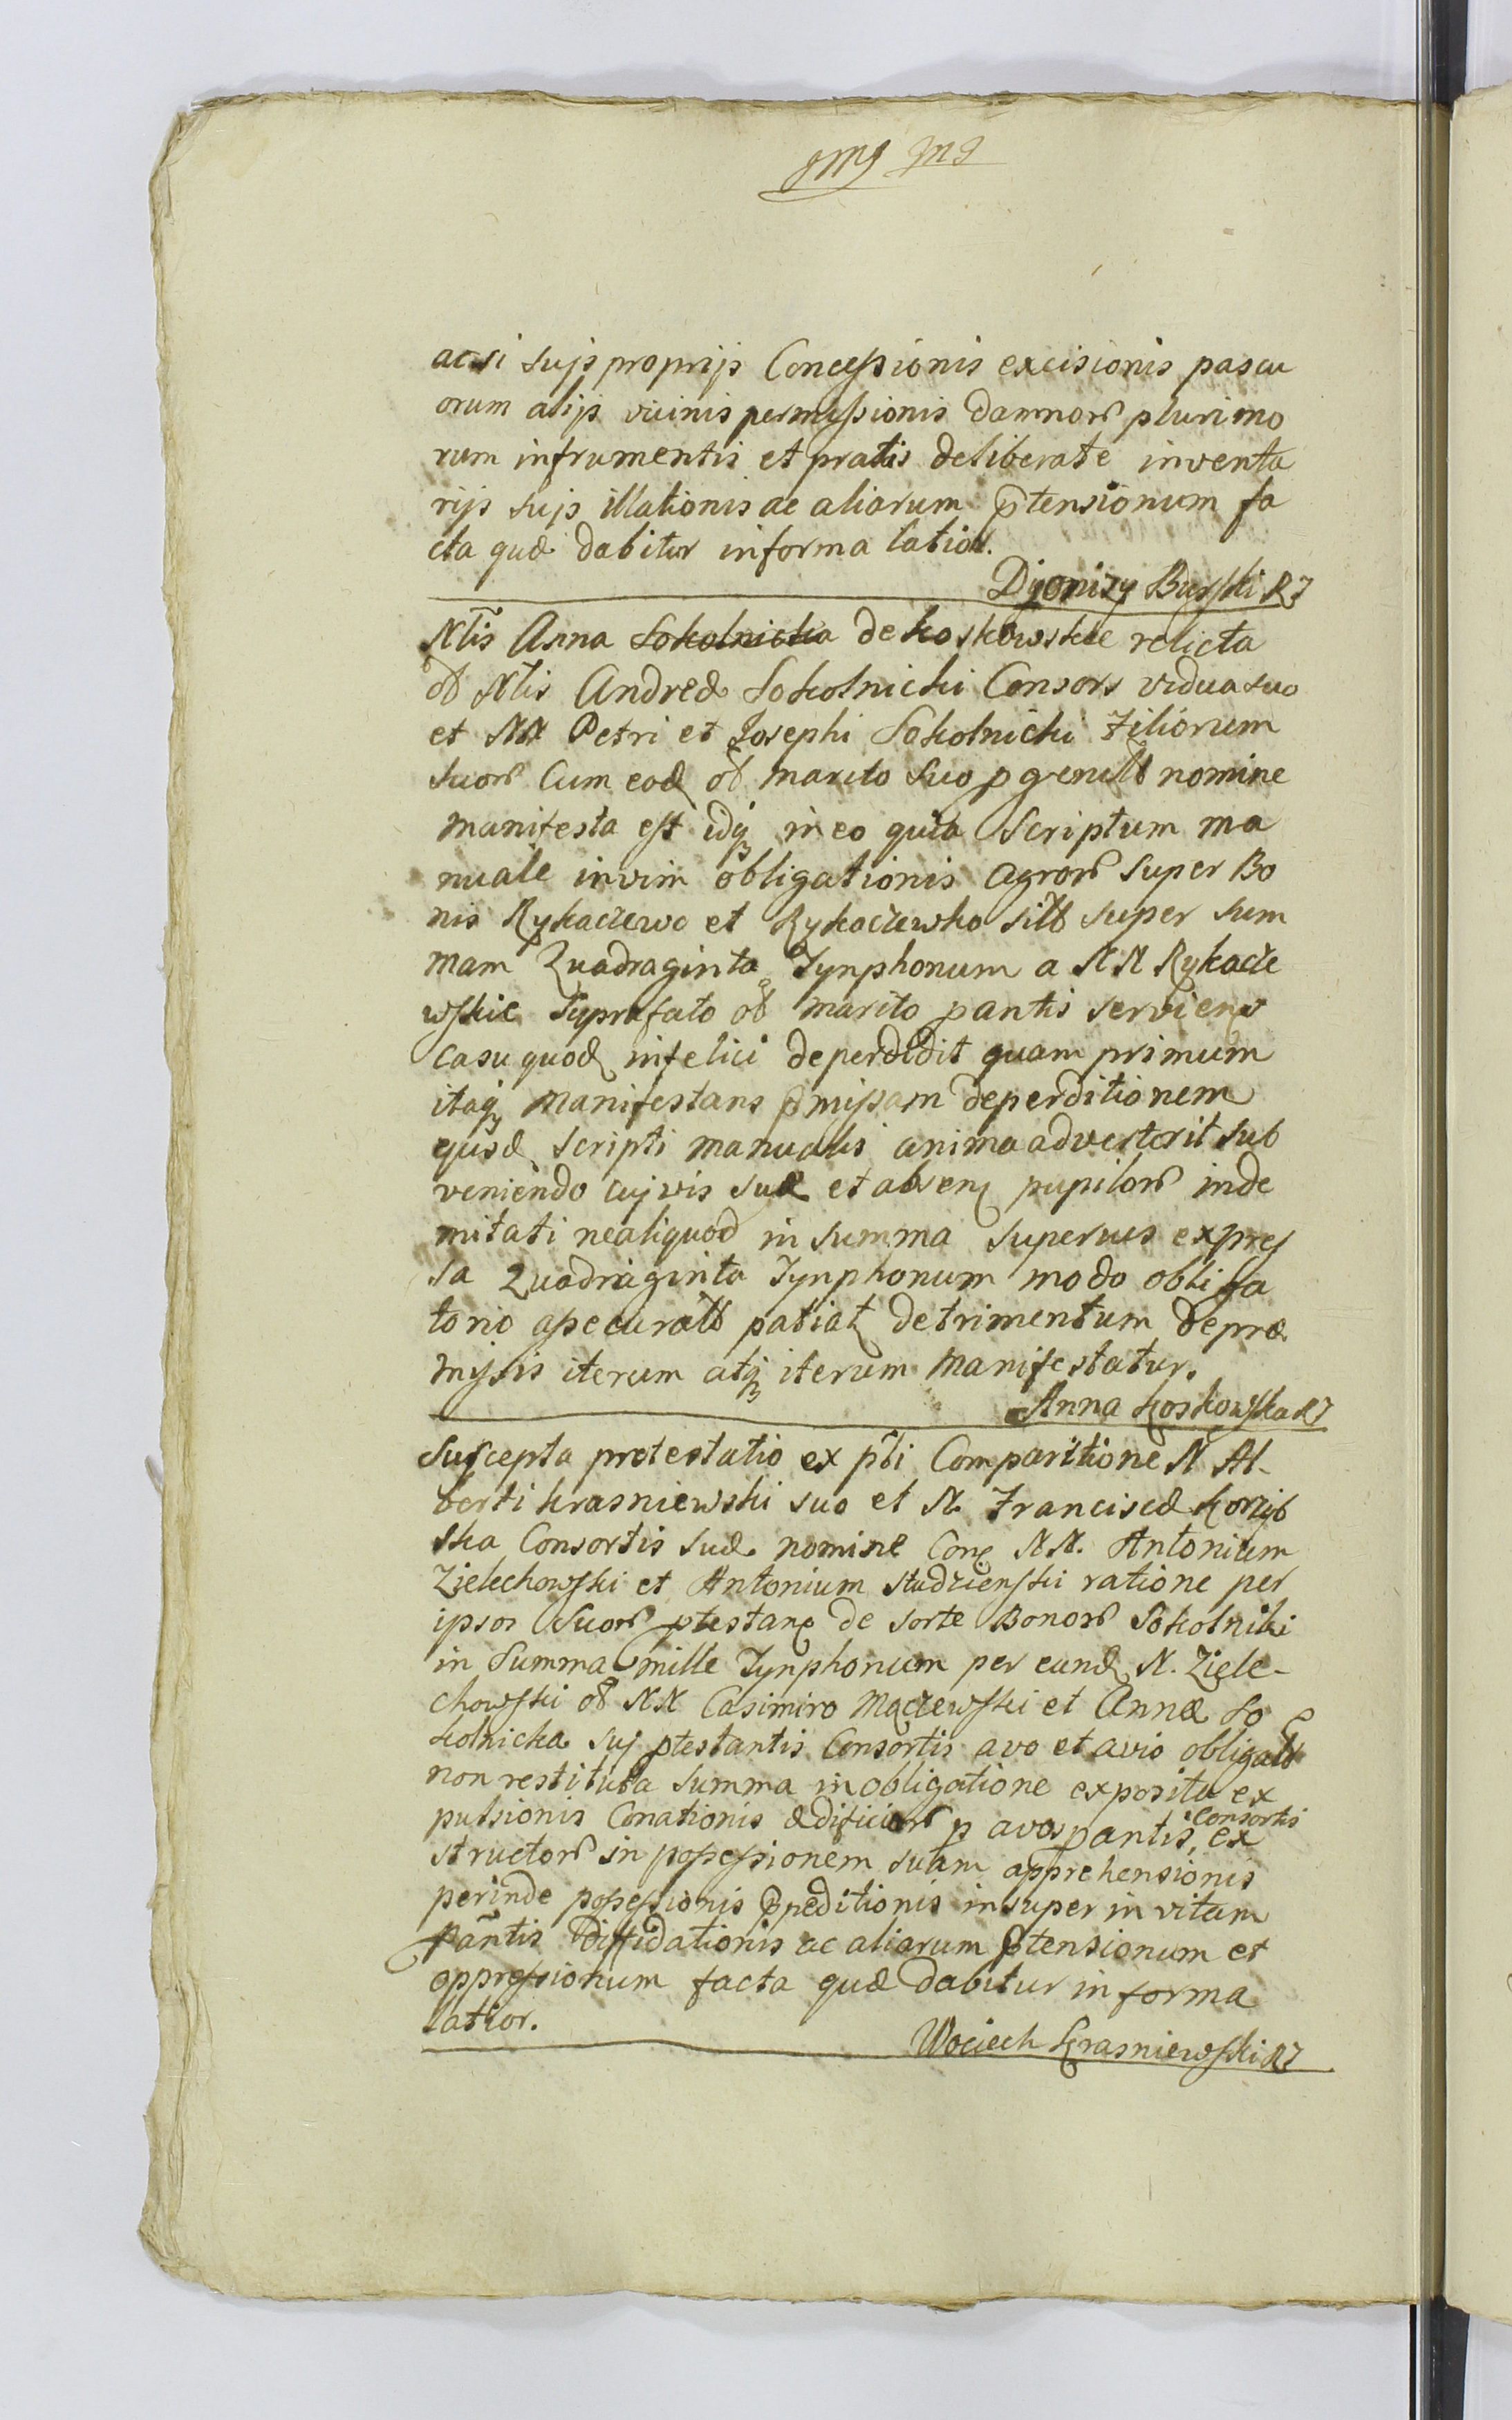 acsi sujs proprijs Concessionis excisionis pascu
orum alijs vicinis permissionis damnor plurimo
rum in frumentis et pratis deliberate inventa
rijs sujs illationis ac aliarum ptensionum fa
cta quæ dabitur in forma latior.
Dyonizy Burski RJ
Nlis Anna Sokolnicka de Koskowskie relicta
ol Nlis Andreæ Sokolnicki Consors vidua suo
et NN Petri et Josephi Sokolnicki Filiorum
suor Cum eod ol marito suo p genitt nomine
manifesta est idq in eo quia Scriptum ma
nuale in vim obligationis agror super Bo
nis Rykaczewo et Rykaczewko sitt super sum
mam Quadraginta Tynphonum a NN Rykacze
wskie suprafato ol marito pantis serviens
casu quod infelici deperdidit quam primum
itaq Manifestans pmissam deperditionem
ejusd scripti manualis animaadverterit sub
veniendo cujvis suæ et absen pupilor inde
mitati ne aliquod in summa superius expres
sa Quadraginta Tynphonum modo obliga
torio assecuratt patiat detrimentum de præ
missis iterum atq iterum Manifestatur.
Anna Koskowska RJ
Suscepta protestatio ex pti Comparitione N Al-
berti Krasniewski suo et N. Franciscæ Korzyb
ska Consortis suæ nomine Con NN. Antonium
Zielechowski et Antonium Studzienski ratione per
ipsos Suor ptestan de sorte Bonor Sokolniki
in Summa mille Tynphonum per eund N. Ziele-
chowski ol NN Casimiro Maczewski et Annæ So
kolnicka suj ptestantis Consortis avo et avio obligatt
non restituta summa in obligatione exposita ex
pulsionis Conationis ædificior p avos pantis, Consortis ex
structor in possessionem suam apprehensionis
perinde possessionis ppeditionis insuper in vitam
Pantis diffidationis ac aliarum ptensionum et
oppressionum facta quæ dabitur in forma
latior.
Wociech Krasniewski RJ